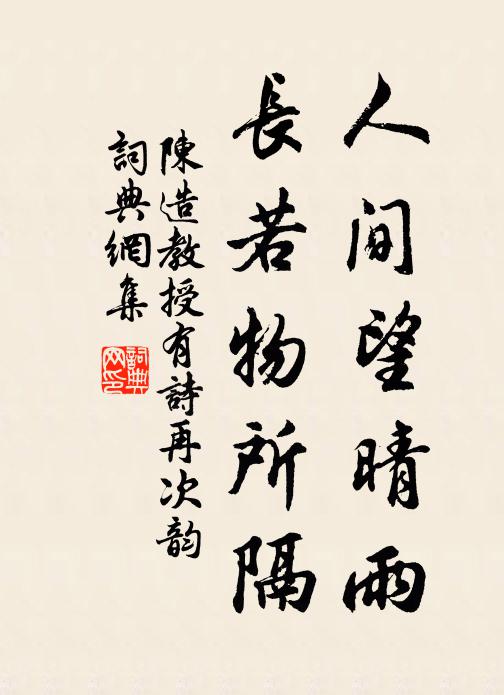 人間望晴雨
長若物所隔
陳造教授有詩再次韵
詞典網集
詞典網印